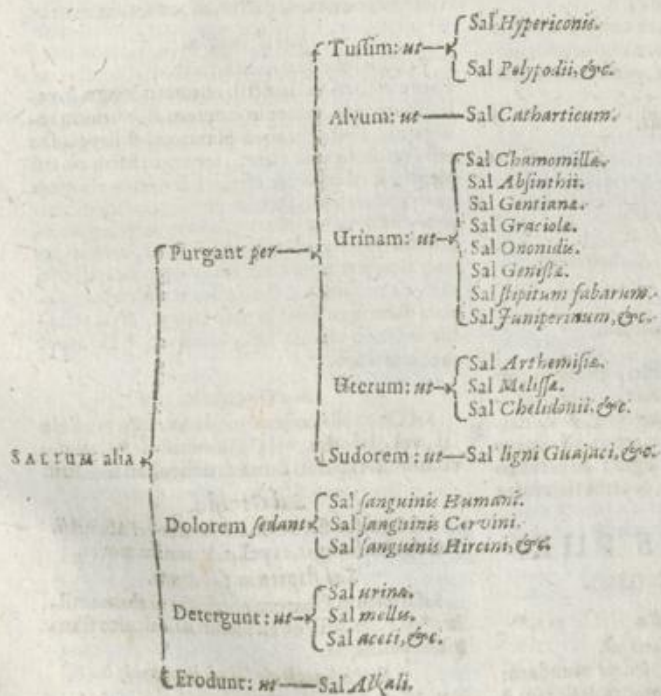 Tussim: ut
Sal Hypericonis.
Sal Polypodii, &c.
Alvum: ut
Sal Catharticum.
Purgant per
Urinam: ut
Sal Chamomillæ.
Sal Absinthii.
Sal Gentianæ.
Sal Graciolæ.
Sal Ononidis.
Sal Genistæ.
Sal stipitum fabarum.
Sal Juniperinum, &c.
Uterum: ut
Sal Arthemisiæ.
Sal Melissæ.
Sal Chelidonii, &c.
SALIUM alia
Sudorem: ut
Sal ligni Guajaci, &c.
Dolorem sedant
Sal sanguinis Humani.
Sal sanguinis Cervini.
Sal sanguinis Hircini, &c.
Detergunt: ut
Sal urinæ.
Sal mellis.
Sal aceti, &c.
Erodunt: ut
Sal Alkali.